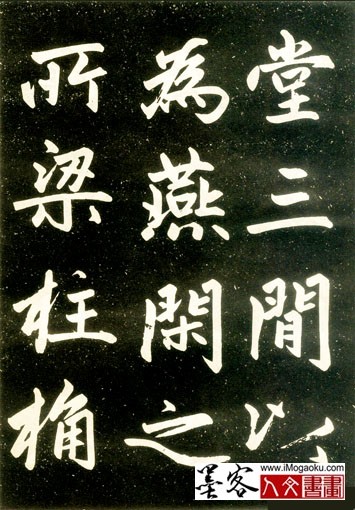 堂三間以
為燕閑之
所梁柱桷
墨客
www.iMogaoku.com
人文書畫